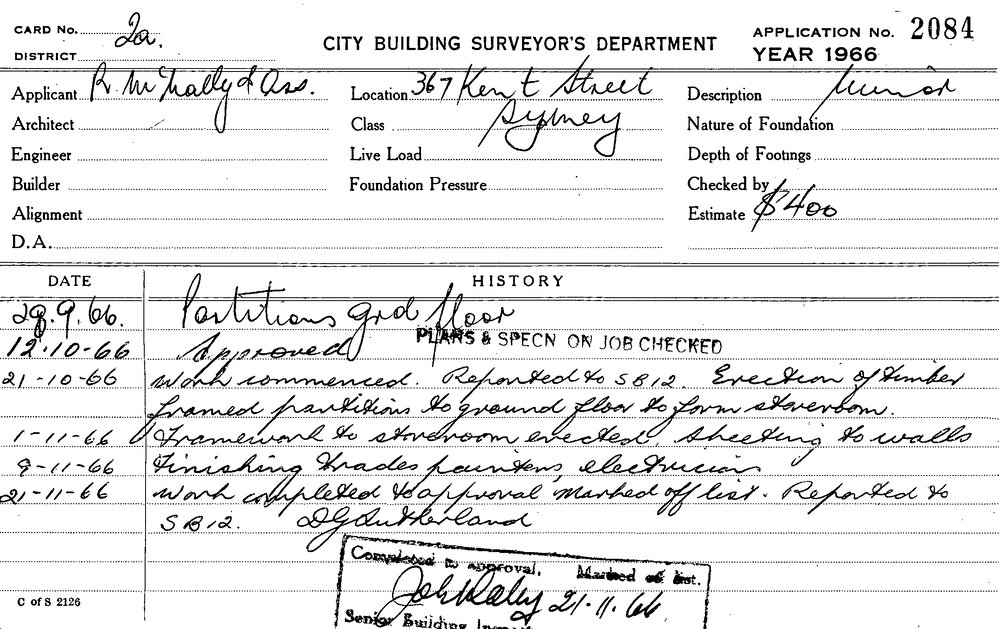 CARD No. 2a.
DISTRICT
CITY BUILDING SURVEYOR'S DEPARTMENT
APPLICATION No. 2084
YEAR 1966
Applicant R. McNally & Ass.
Location 367 Kent Street
Description Minor
Architect
Class Sydney
Nature of Foundation
Engineer
Live Load
Depth of Footings
Builder
Foundation Pressure
Checked by
Alignment
Estimate $400
D.A.
DATE HISTORY
29.9.66. Partitions grd floor
PLANS & SPECN ON JOB CHECKED
12.10-66 Approved
21-10-66 Work commenced. Reported to SB12. Erection of timber
framed partitions to ground floor to form storeroom.
1-11-66 Framework to storeroom erected. Sheeting to walls
9-11-66 Finishing trades painters, electrician
21-11-66 Work completed to approval, marked off list. Reported to
SB12. DG Sutherland
Completed to approval. Marked off list.
21.11.66
Senior Building
C of S 2126